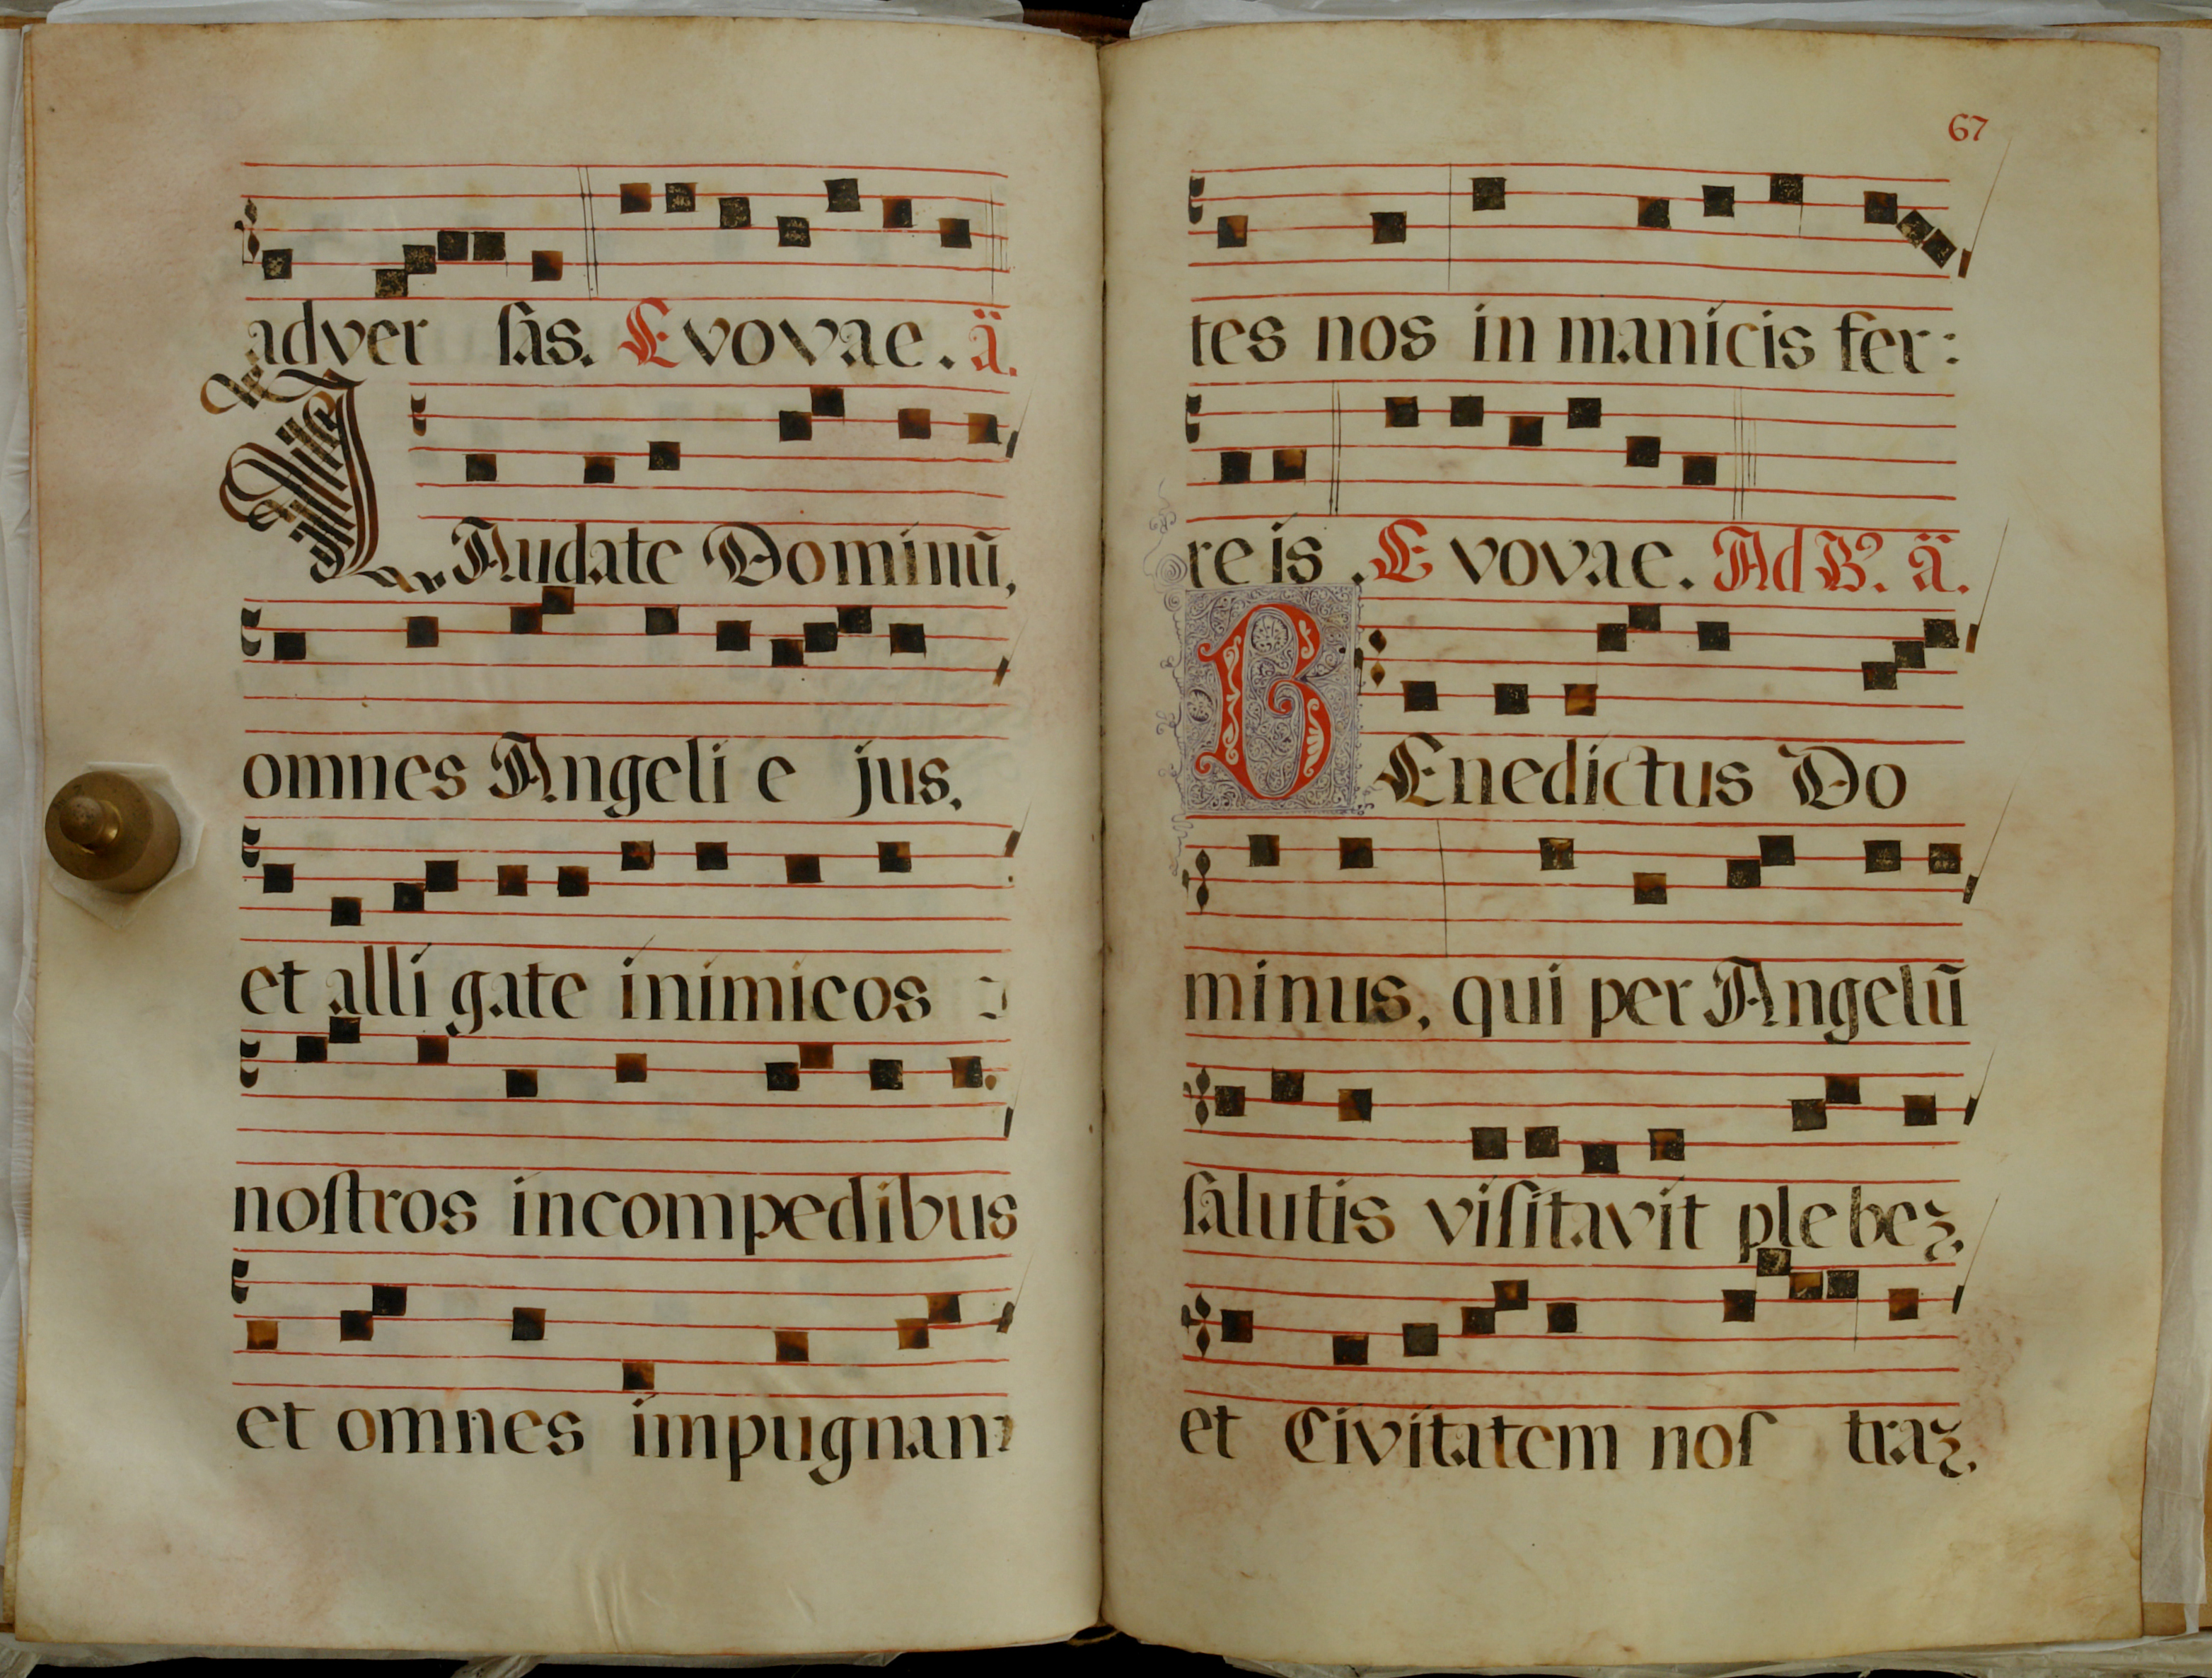 adver sas. Evovae. ã.
LAudate Dominũ,
omnes Angeli e jus,
et alli gate inimicos
noſtros incompedibus
et omnes impugnan
67
tes nos in manicis fer:
re is. E vovae. Ad B? ã.
BEnedictus Do
minus, qui per Angelũ
ſalutis viſitavit ple beʒ,
et Civitatem noſ traʒ,